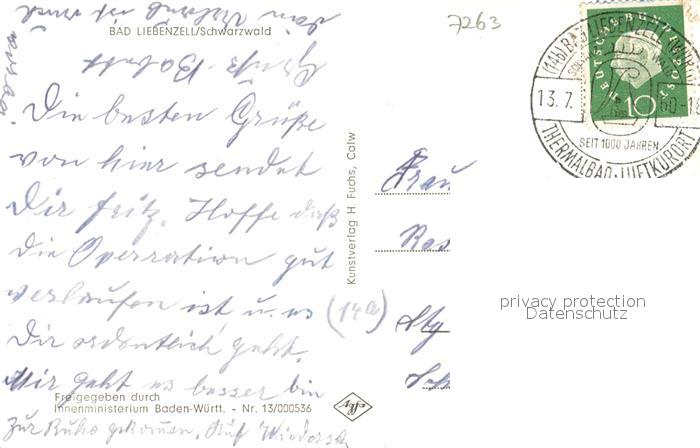 7263
BAD LIEBENZELL/Schwarzwald
Die besten Grüße
von hier sendet
Dir Fritz. Hoffe daß
die Operration gut
verlaufen ist u. es
Dir ordentlich geht.
Mir geht es besser bin
zur Ruhe gekommen. Auf Wiederseh
Gruß
ist
Freigegeben durch
Innenministerium Baden-Württ. - Nr. 13/000536
Kunstverlag H. Fuchs, Calw
DEUTSCHE BUNDESPOST
10
(14b) BAD LIEBENZELL (WÜRTT)
13. 7. 60-18
SEIT 1000 JAHREN
THERMALBAD · LUFTKURORT
Frau
(14a) Stg
privacy protection
Datenschutz